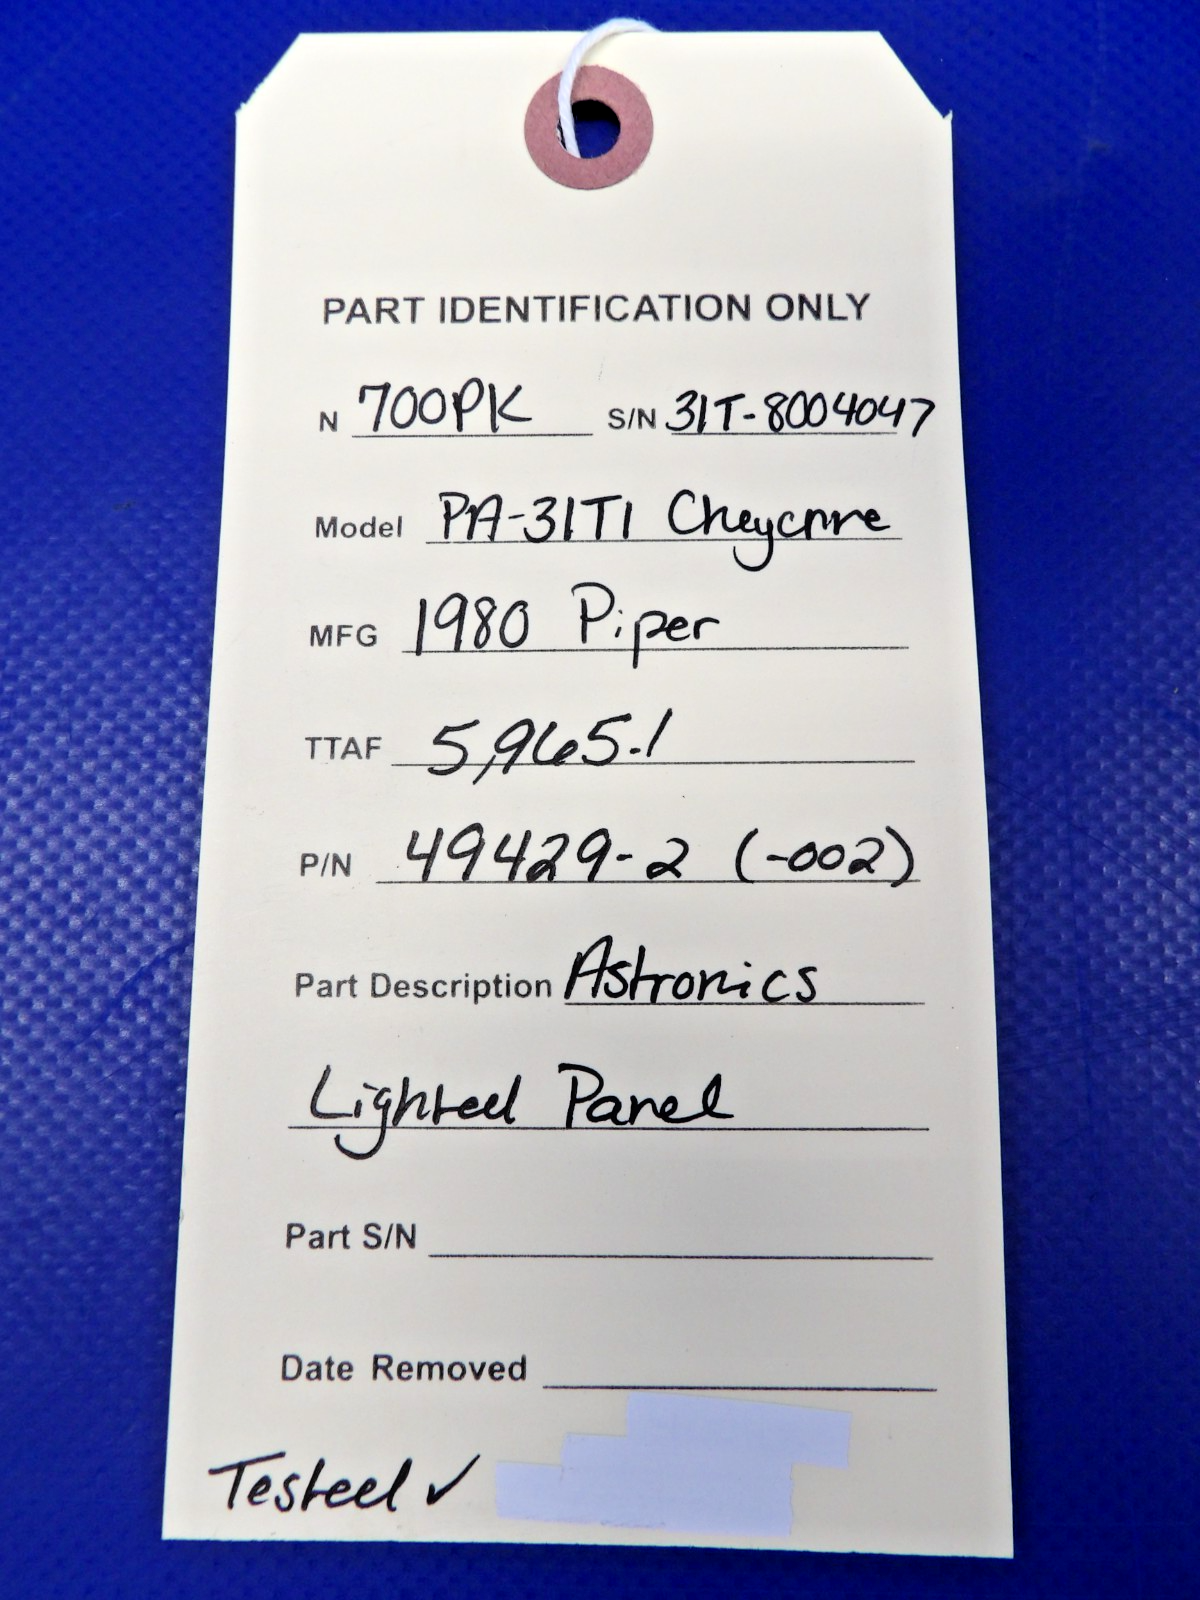 PART IDENTIFICATION ONLY
N 700PK S/N 31T-8004047
Model PA-31T1 Cheyenne
MFG 1980 Piper
TTAF 5,965.1
P/N 49429-2 (-002)
Part Description Astronics
Lighted Panel
Part S/N
Date Removed
Tested ✓